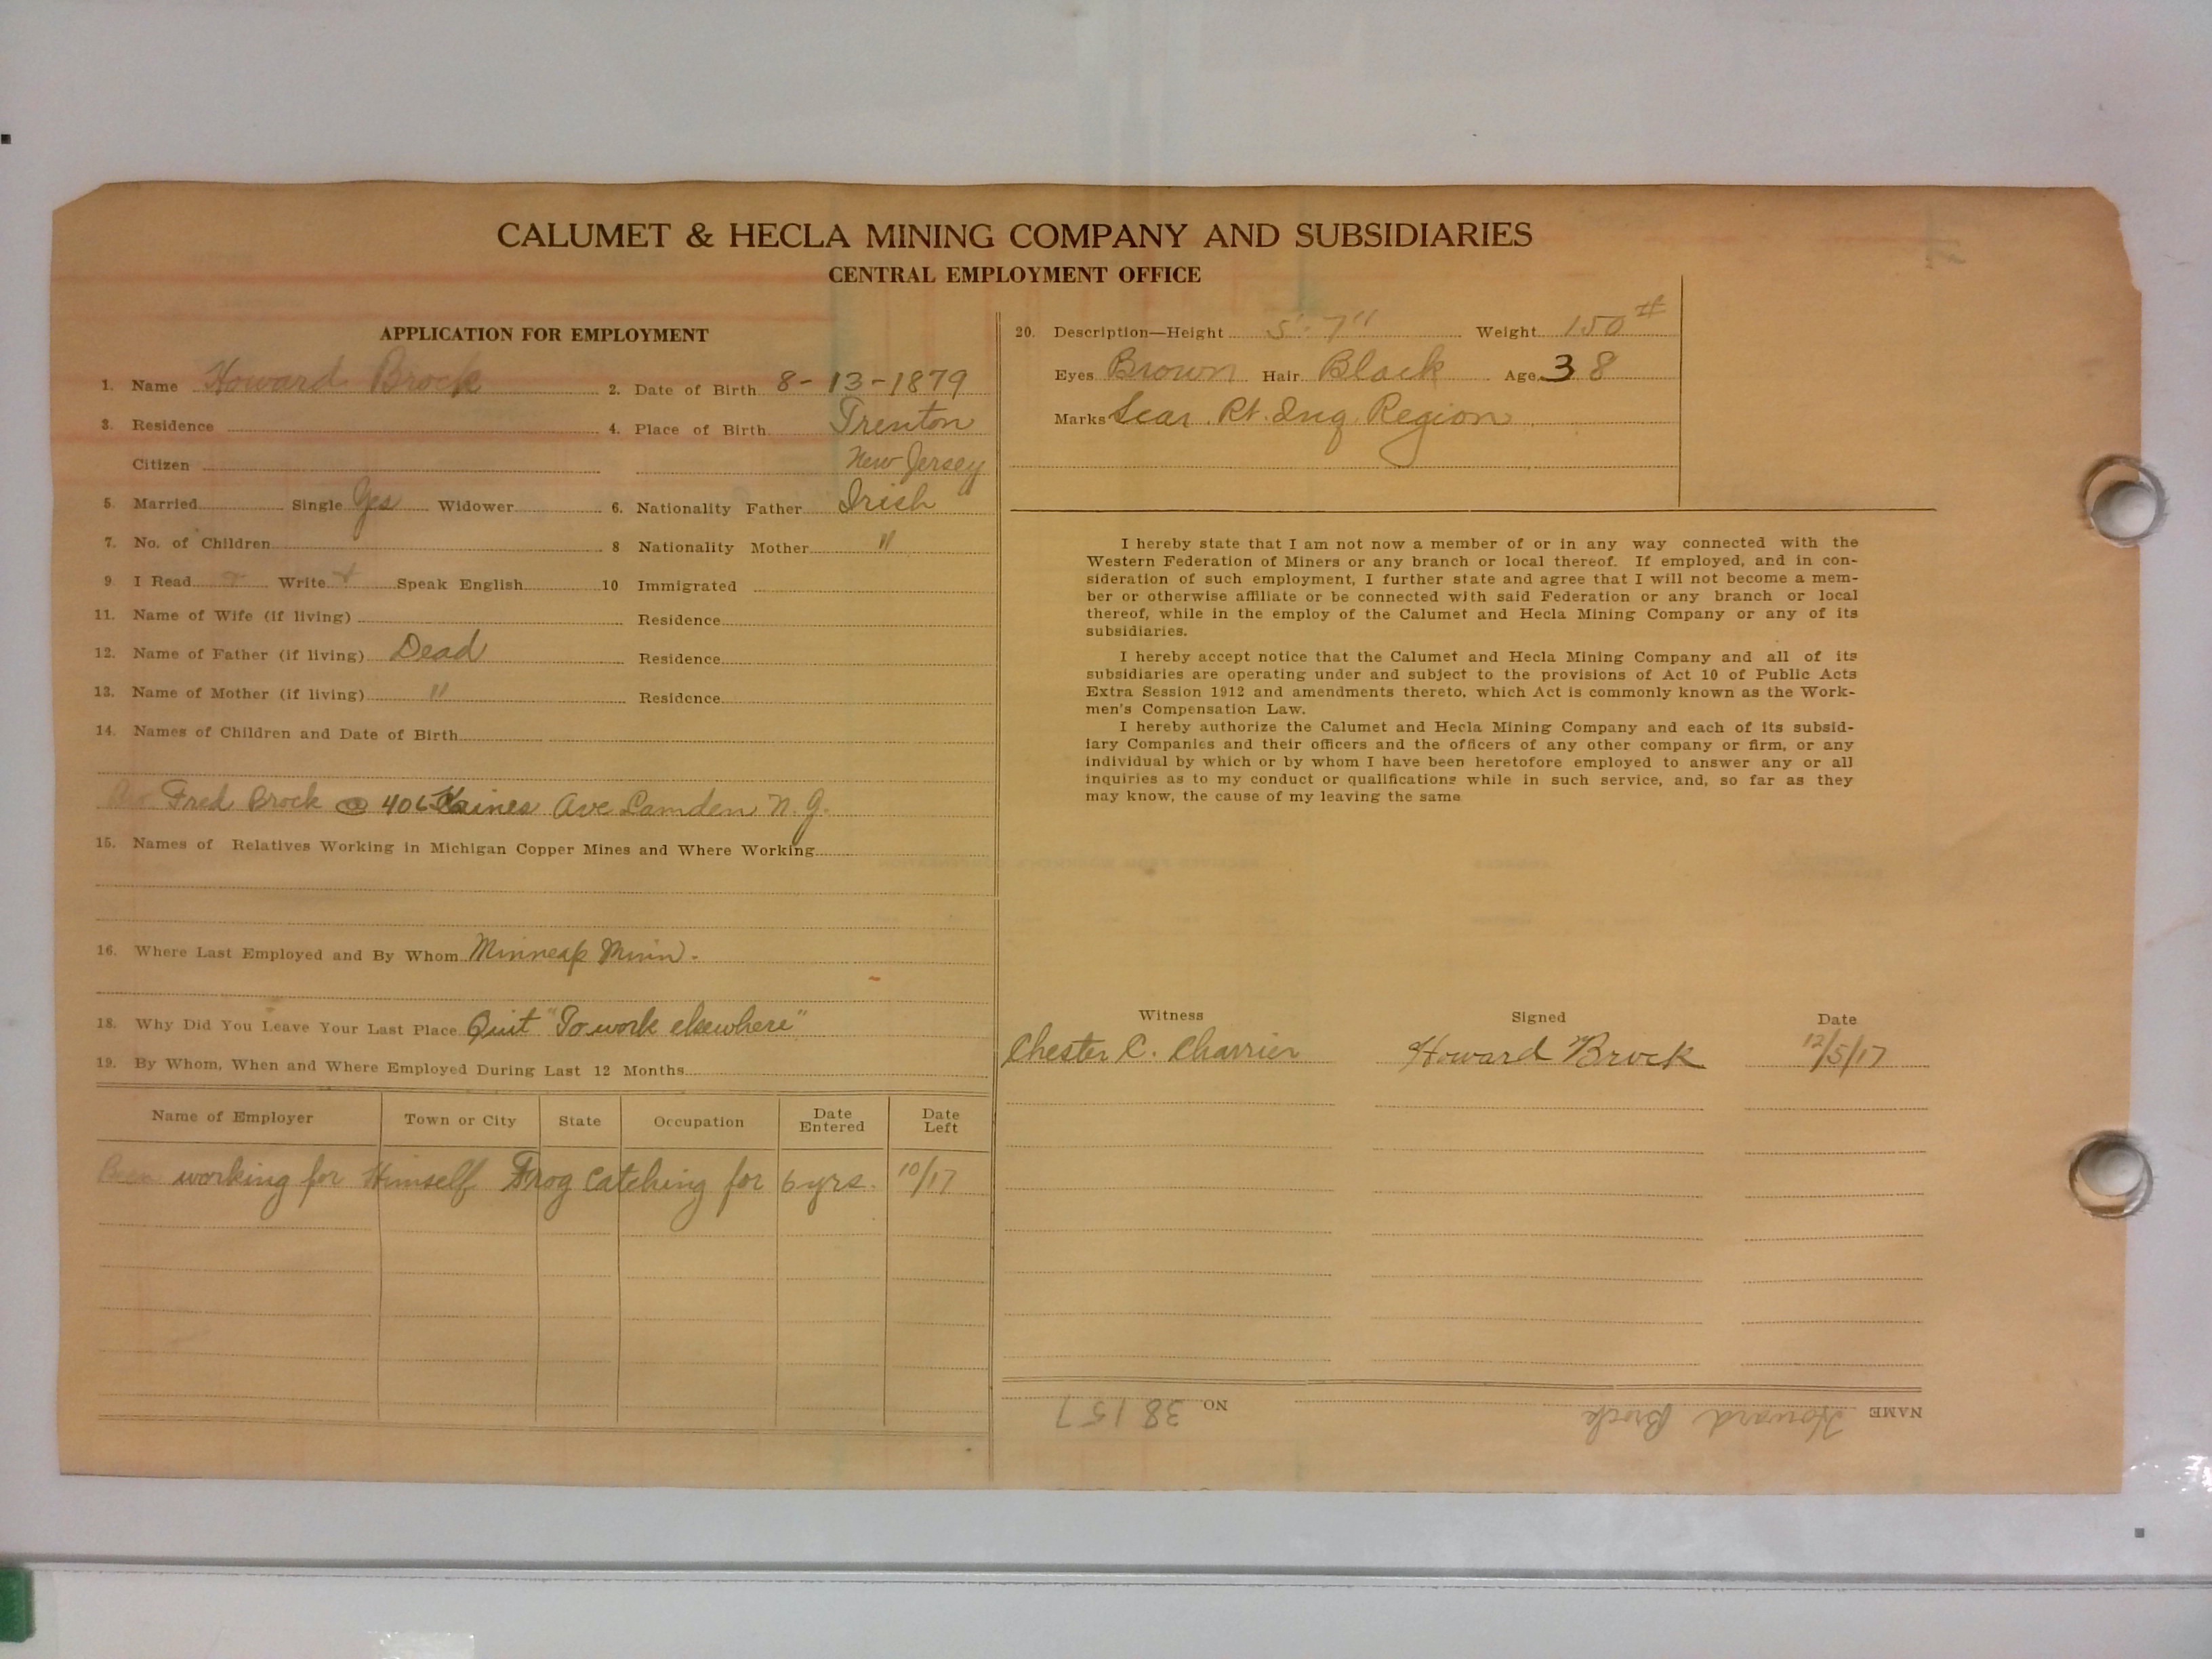 CALUMET & HECLA MINING COMPANY AND SUBSIDIARIES
CENTRAL EMPLOYMENT OFFICE
APPLICATION FOR EMPLOYMENT
1. Name Howard Brock 2. Date of Birth 8-13-1879
3. Residence 4. Place of Birth Trenton
Citizen New Jersey
5. Married Single Yes Widower 6. Nationality Father Irish
7. No. of Children 8 Nationality Mother "
9. I Read Write Speak English 10 Immigrated
11. Name of Wife (if living) Residence
12. Name of Father (if living) Dead Residence
13. Name of Mother (if living) " Residence
14. Names of Children and Date of Birth
Fred Brock @ 406 Ave Camden N.J.
15. Names of Relatives Working in Michigan Copper Mines and Where Working
16. Where Last Employed and By Whom Minneap Minn.
18. Why Did You Leave Your Last Place Quit "To work elsewhere"
19. By Whom, When and Where Employed During Last 12 Months
Name of Employer Town or City State Occupation Date Entered Date Left
Been working for Himself Frog Catching for 6 yrs. 10/17
20. Description—Height 5'-7" Weight 150#
Eyes Brown Hair Black Age 38
Marks Scar Rt. Ing. Region
I hereby state that I am not now a member of or in any way connected with the
Western Federation of Miners or any branch or local thereof. If employed, and in con-
sideration of such employment, I further state and agree that I will not become a mem-
ber or otherwise affiliate or be connected with said Federation or any branch or local
thereof, while in the employ of the Calumet and Hecla Mining Company or any of its
subsidiaries.
I hereby accept notice that the Calumet and Hecla Mining Company and all of its
subsidiaries are operating under and subject to the provisions of Act 10 of Public Acts
Extra Session 1912 and amendments thereto, which Act is commonly known as the Work-
men's Compensation Law.
I hereby authorize the Calumet and Hecla Mining Company and each of its subsid-
iary Companies and their officers and the officers of any other company or firm, or any
individual by which or by whom I have been heretofore employed to answer any or all
inquiries as to my conduct or qualifications while in such service, and, so far as they
may know, the cause of my leaving the same
Witness Signed Date
Chester C. Charrier Howard Brock 12/5/17
NAME Howard Brock NO. 38157